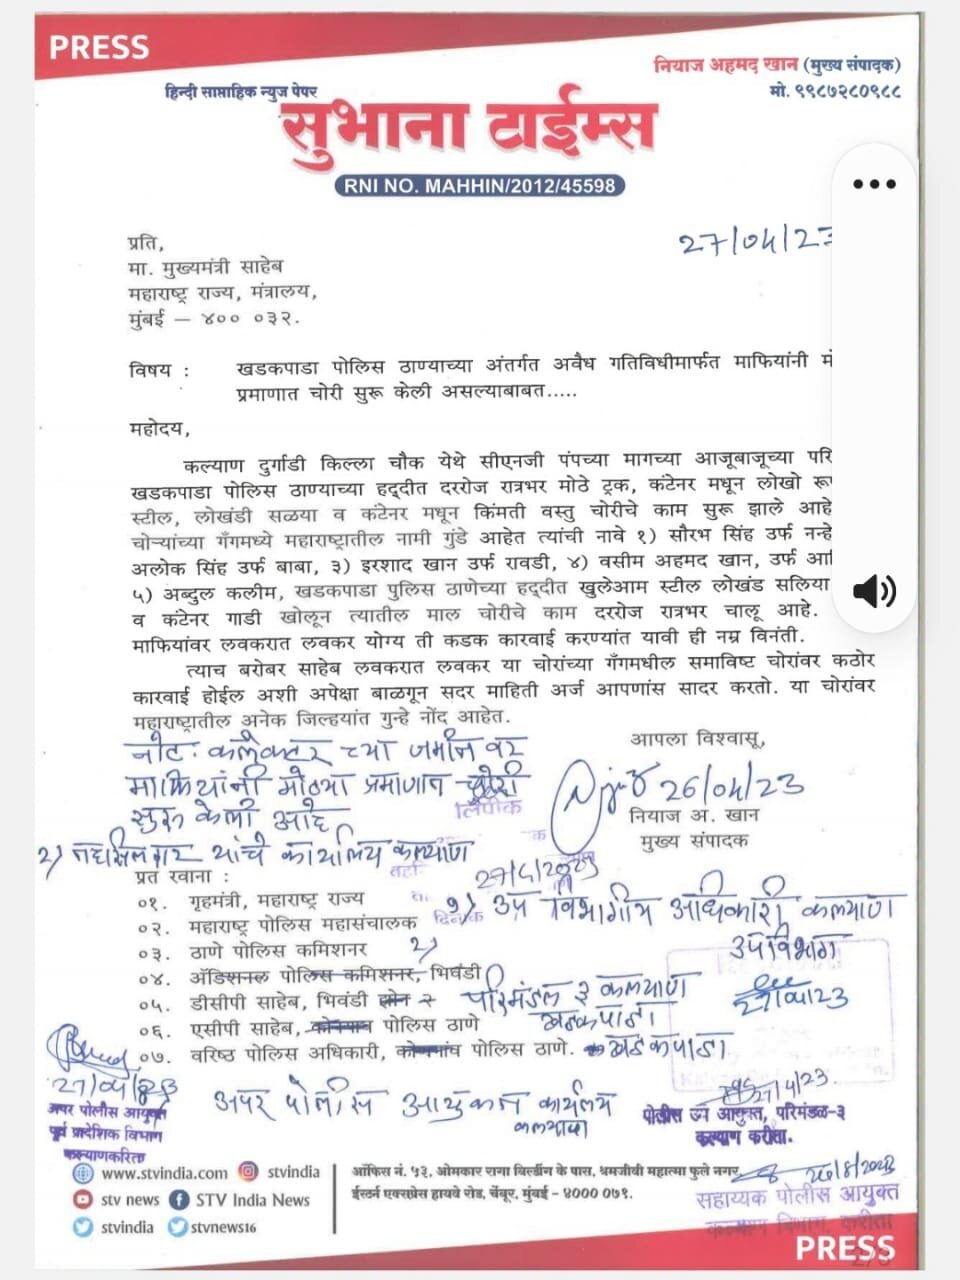 PRESS
नियाज अहमद खान (मुख्य संपादक)
मो. ९९८७२८०९८८
हिन्दी साप्ताहिक न्युज पेपर
सुभाना टाईम्स
RNI NO. MAHHIN/2012/45598
27/04/23
प्रति,
मा. मुख्यमंत्री साहेब
महाराष्ट्र राज्य, मंत्रालय,
मुंबई – ४०० ०३२.
विषय : खडकपाडा पोलिस ठाण्याच्या अंतर्गत अवैध गतिविधीमार्फत माफियांनी
प्रमाणात चोरी सुरू केली असल्याबाबत.....
महोदय,
कल्याण दुर्गाडी किल्ला चौक येथे सीएनजी पंपच्या मागच्या आजूबाजूच्या
खडकपाडा पोलिस ठाण्याच्या हद्दीत दररोज रात्रभर मोठे ट्रक, कंटेनर मधून लोखो
स्टील, लोखंडी सळया व कंटेनर मधून किंमती वस्तु चोरीचे काम सुरू झाले आहे
चोऱ्यांच्या गँगमध्ये महाराष्ट्रातील नामी गुंडे आहेत त्यांची नावे १) सौरभ सिंह उर्फ नन्हे
अलोक सिंह उर्फ बाबा, ३) इरशाद खान उर्फ रावडी, ४) वसीम अहमद खान, उर्फ
५) अब्दुल कलीम, खडकपाडा पुलिस ठाणेच्या हद्दीत खुलेआम स्टील लोखंड सलिया
व कंटेनर गाडी खोलून त्यातील माल चोरीचे काम दररोज रात्रभर चालू आहे.
माफियांवर लवकरात लवकर योग्य ती कडक कारवाई करण्यांत यावी ही नम्र विनंती.
त्याच बरोबर साहेब लवकरात लवकर या चोरांच्या गँगमधील समाविष्ट चोरांवर कठोर
कारवाई होईल अशी अपेक्षा बाळगून सदर माहिती अर्ज आपणांस सादर करतो. या चोरांवर
महाराष्ट्रातील अनेक जिल्हयांत गुन्हे नोंद आहेत.
नोट: कलेक्टर च्या जमीन वर
माफियांनी मोठ्या प्रमाणात चोरी
सुरु केली आहे
२) तहसिलदार यांचे कार्यालय कल्याण
आपला विश्वासू,
26/04/23
नियाज अ. खान
मुख्य संपादक
लिपीक
27/4/2023
दिनांक
प्रत रवाना :
०१. गृहमंत्री, महाराष्ट्र राज्य
०२. महाराष्ट्र पोलिस महासंचालक
०३. ठाणे पोलिस कमिशनर
०४. अ‍ॅडिशनल पोलिस कमिशनर, भिवंडी
०५. डीसीपी साहेब, भिवंडी झोन २ परिमंडल ३ कल्याण
०६. एसीपी साहेब, कोनगाव पोलिस ठाणे खडकपाडा
०७. वरिष्ठ पोलिस अधिकारी, कोनगांव पोलिस ठाणे. खडकपाडा
१) उप विभागीय अधिकारी कल्याण
उपविभाग
२)
27/04/23
27/04/23
अपर पोलीस आयुक्त
पूर्व प्रादेशिक विभाग
कल्याणकरिता
अपर पोलीस आयुक्त कार्यालय
कल्याण
27/4/23.
पोलीस उप आयुक्त, परिमंडळ-३
कल्याण करीता.
सहाय्यक पोलीस आयुक्त
कल्याण विभाग, करीता
www.stvindia.com stvindia
stv news STV India News
stvindia stvnews16
ऑफिस नं. ५३, ओमकार रागा बिल्डींग के पास, श्रमजीवी महात्मा फुले नगर,
ईस्टर्न एक्सप्रेस हायवे रोड, चेंबूर, मुंबई - ४०००७१.
PRESS
2/3